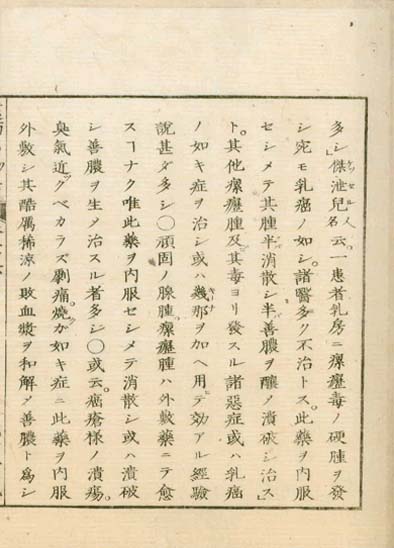 多シ」傑泄兒人名云。一患者乳房ニ瘰癧毒ノ硬腫ヲ發
シ宛モ乳癌ノ如シ。諸醫多ク不治トス。此藥ヲ内服
セシメテ其腫半消散シ半善膿ヲ釀メ潰破シ治ス」
ト。其他瘰癧腫及其毒ヨリ發スル諸惡症或ハ乳癌
ノ如キ症ヲ治シ或ハ幾那ヲ加ヘ用テ効アル經驗
説甚ダ多シ〇頑固ノ腺腫瘰癧腫ハ外敷藥ニテ愈
スヿナク唯此藥ヲ内服セシメテ消散シ或ハ潰破
シ善膿ヲ生メ治スル者多シ〇或云。癌瘡樣ノ潰瘍。
臭氣近ヅクベカラズ剝痛燒ガ如キ症ニ此藥ヲ内服
外敷シ其酷厲稀涼ノ敗血漿ヲ和解メ善膿ト爲シ